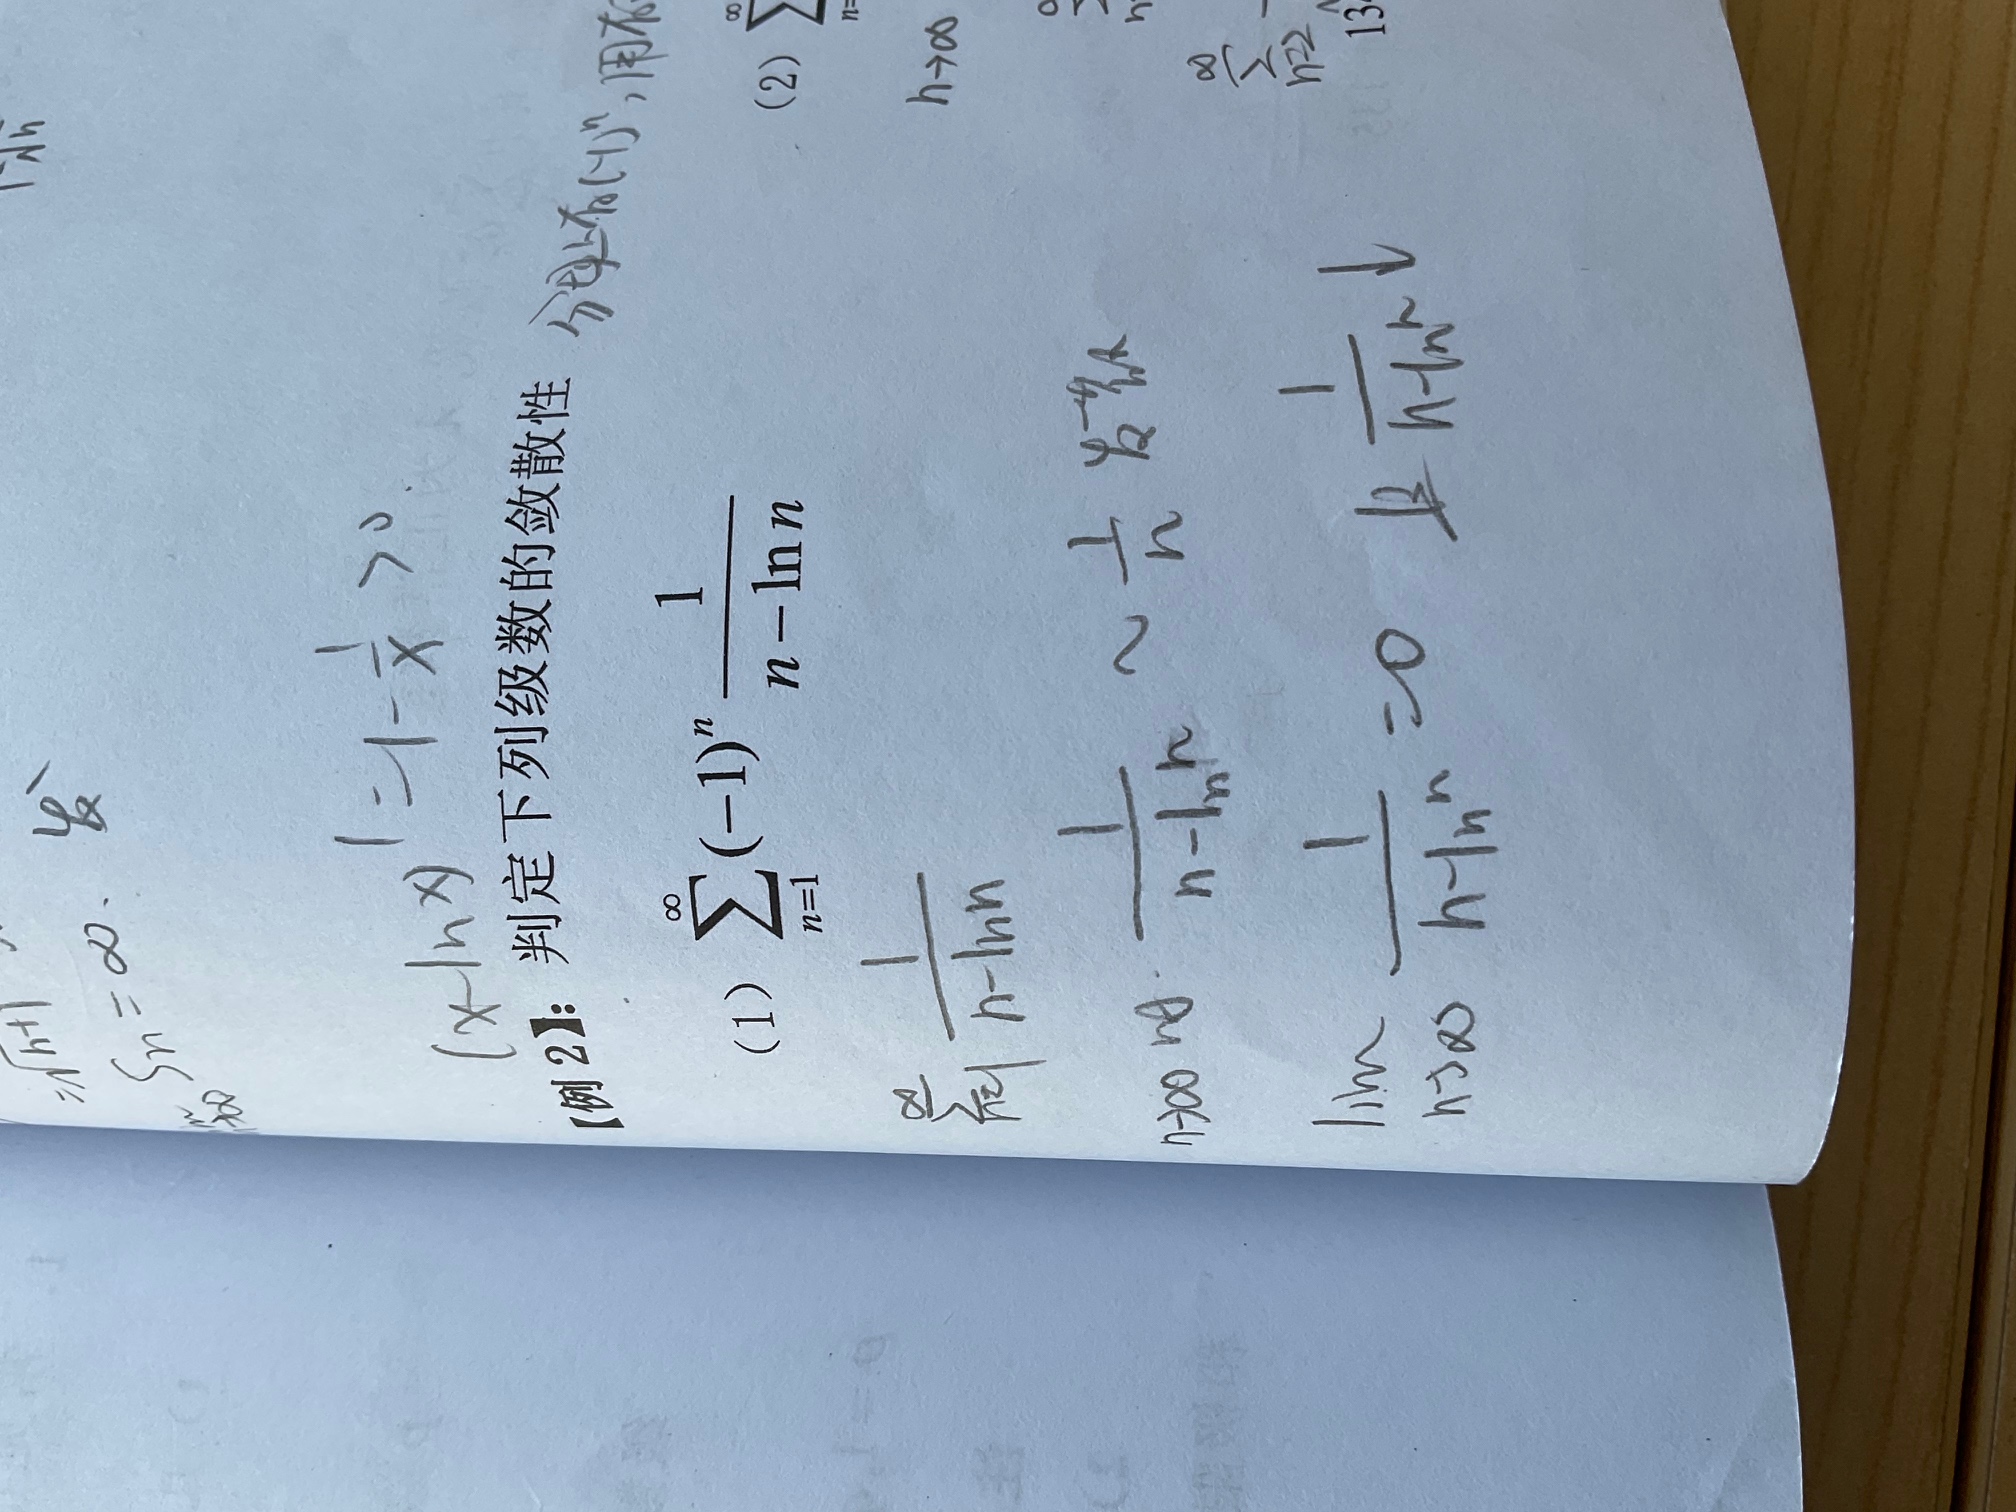 ≥√n+1
Sn=∞. 发
(x-lnx)'=1-1/x>0
【例 2】: 判定下列级数的敛散性 分母上有(-1)ⁿ, 用
(1) ∑_{n=1}^{∞} (-1)ⁿ 1/(n-ln n)
(2) ∑
∑_{n=1}^{∞} 1/(n-lnn)
n→∞
n→∞时. 1/(n-lnn) ~ 1/n 发散
lim_{n→∞} 1/(n-lnn) =0 且 1/(n-lnn) ↓
∑_{n=2}^{∞}